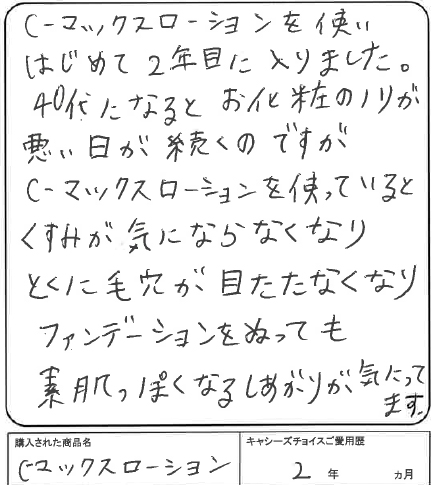 C-マックスローションを使い
はじめて2年目に入りました。
40代になるとお化粧のノリが
悪い日が続くのですが
C-マックスローションを使っていると
くすみが気にならなくなり
とくに毛穴が目たたなくなり
ファンデーションをぬっても
素肌っぽくなるしあがりが気にって
ます。
購入された商品名
キャシーズチョイスご愛用歴
C-マックスローション
2 年 カ月